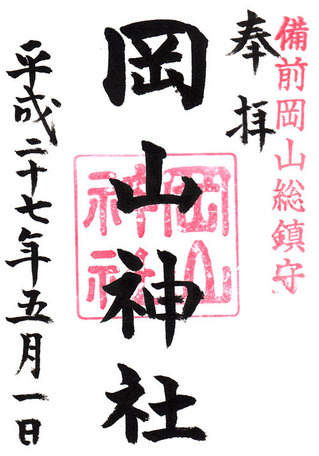 備前岡山総鎮守
奉拝
岡山神社
岡山神社
平成二十七年五月一日